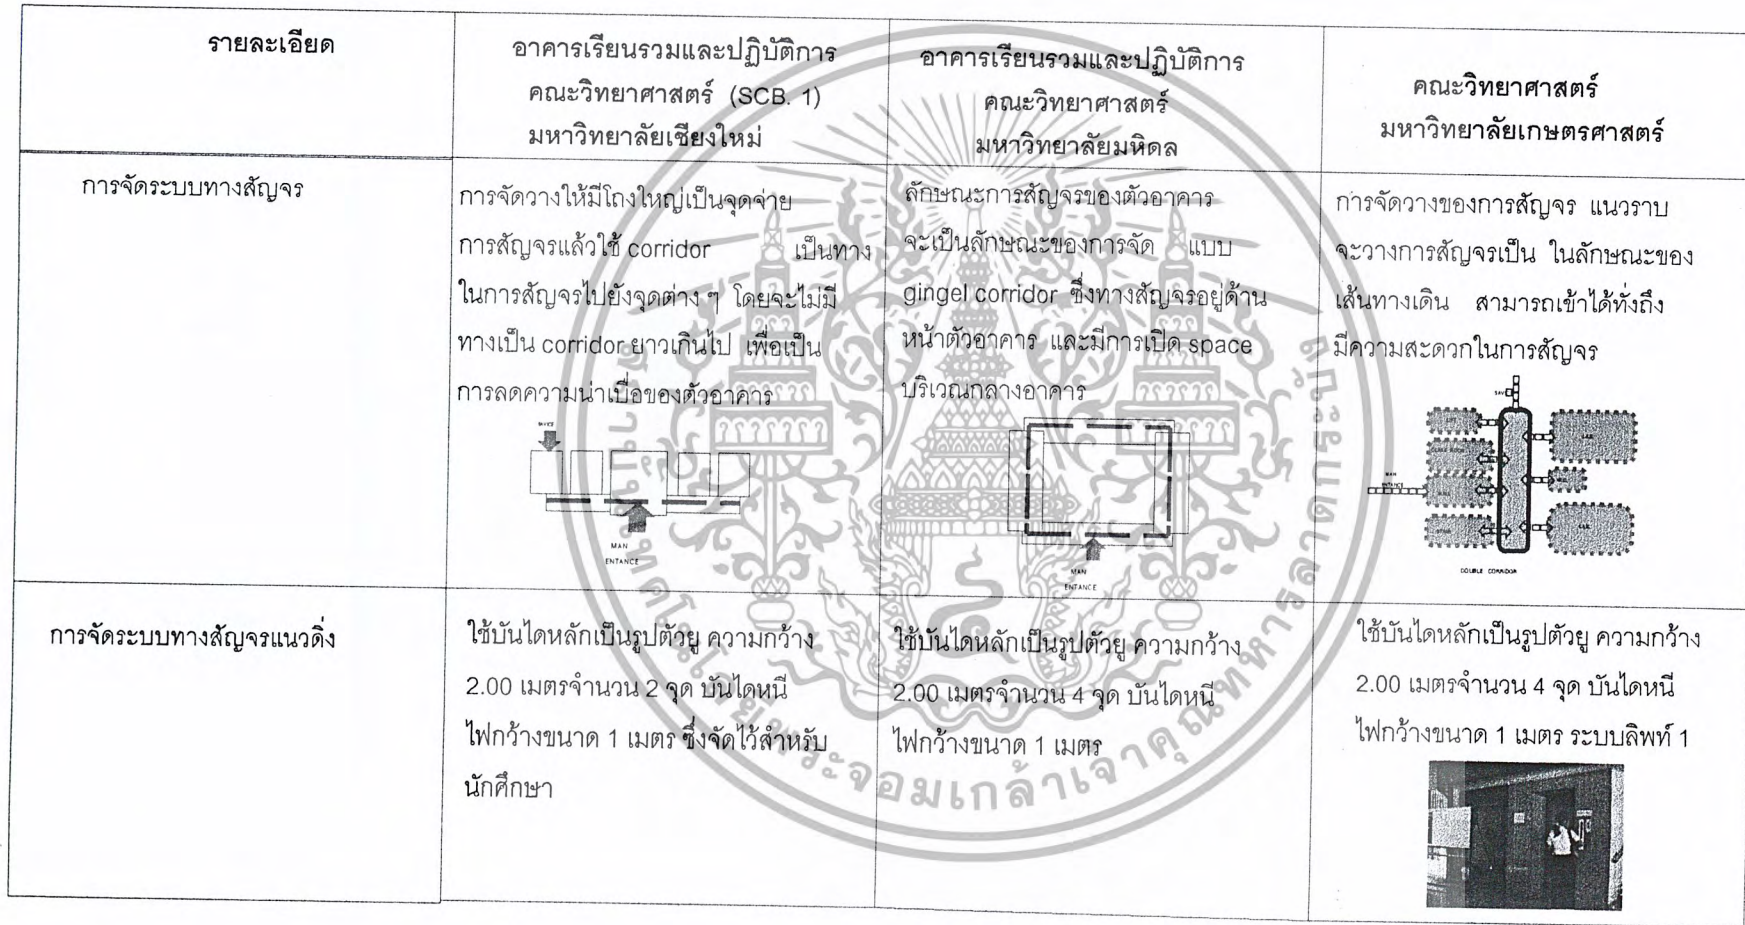 รายละเอียด
อาคารเรียนรวมและปฏิบัติการ
คณะวิทยาศาสตร์ (SCB. 1)
มหาวิทยาลัยเชียงใหม่
อาคารเรียนรวมและปฏิบัติการ
คณะวิทยาศาสตร์
มหาวิทยาลัยมหิดล
คณะวิทยาศาสตร์
มหาวิทยาลัยเกษตรศาสตร์
การจัดระบบทางสัญจร
การจัดวางให้มีโถงใหญ่เป็นจุดจ่าย
การสัญจรแล้วใช้ corridor เป็นทาง
ในการสัญจรไปยังจุดต่าง ๆ โดยจะไม่มี
ทางเป็น corridor ยาวเกินไป เพื่อเป็น
การลดความน่าเบื่อของตัวอาคาร
MAN
ENTANCE
ลักษณะการสัญจรของตัวอาคาร
จะเป็นลักษณะของการจัด แบบ
gingel corridor ซึ่งทางสัญจรอยู่ด้าน
หน้าตัวอาคาร และมีการเปิด space
บริเวณกลางอาคาร
MAN
ENTANCE
การจัดวางของการสัญจร แนวราบ
จะวางการสัญจรเป็น ในลักษณะของ
เส้นทางเดิน สามารถเข้าได้ทั่งถึง
มีความสะดวกในการสัญจร
LAB
MAN
ENTANCE
LAB
DOUBLE CORRIDOR
การจัดระบบทางสัญจรแนวดิ่ง
ใช้บันไดหลักเป็นรูปตัวยู ความกว้าง
2.00 เมตรจำนวน 2 จุด บันไดหนี
ไฟกว้างขนาด 1 เมตร ซึ่งจัดไว้สำหรับ
นักศึกษา
ใช้บันไดหลักเป็นรูปตัวยู ความกว้าง
2.00 เมตรจำนวน 4 จุด บันไดหนี
ไฟกว้างขนาด 1 เมตร
ใช้บันไดหลักเป็นรูปตัวยู ความกว้าง
2.00 เมตรจำนวน 4 จุด บันไดหนี
ไฟกว้างขนาด 1 เมตร ระบบลิพท์ 1
สถาบันเทคโนโลยีพระจอมเกล้าเจ้าคุณทหารลาดกระบัง